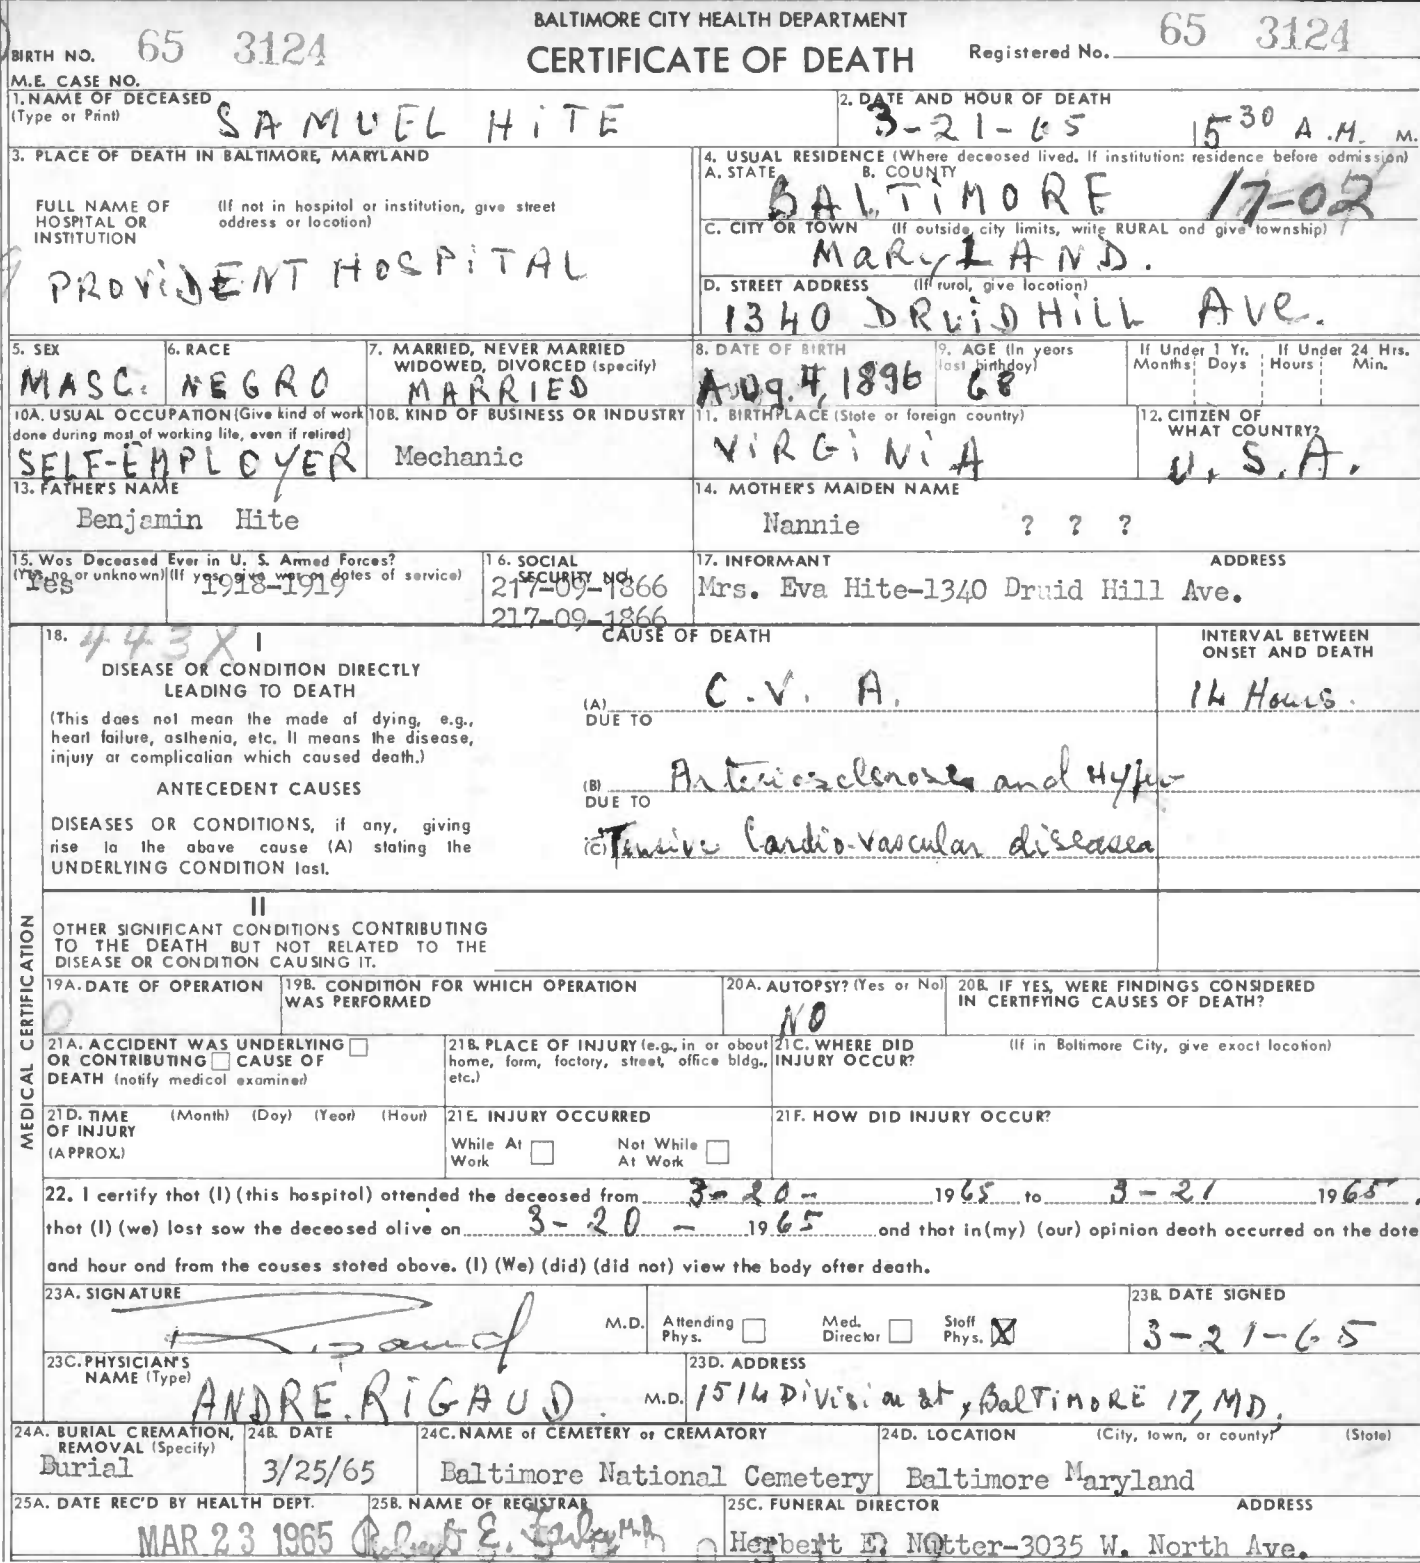 BALTIMORE CITY HEALTH DEPARTMENT
CERTIFICATE OF DEATH
BIRTH NO. 65 3124
Registered No. 65 3124
M.E. CASE NO.
1. NAME OF DECEASED
(Type or Print)
SAMUEL HITE
2. DATE AND HOUR OF DEATH
3-21-65 15 30 A.M. M.
3. PLACE OF DEATH IN BALTIMORE, MARYLAND
FULL NAME OF HOSPITAL OR INSTITUTION
(If not in hospital or institution, give street address or location)
PROVIDENT HOSPITAL
4. USUAL RESIDENCE (Where deceased lived. If institution: residence before admission)
A. STATE B. COUNTY
BALTIMORE 17-02
C. CITY OR TOWN (If outside city limits, write RURAL and give township)
MARYLAND.
D. STREET ADDRESS (If rural, give location)
1340 DRUID HILL AVE.
5. SEX
MASC.
6. RACE
NEGRO
7. MARRIED, NEVER MARRIED
WIDOWED, DIVORCED (specify)
MARRIED
8. DATE OF BIRTH
Aug. 4, 1896
9. AGE (In years last birthday)
68
If Under 1 Yr.
Months Days
If Under 24 Hrs.
Hours Min.
10A. USUAL OCCUPATION (Give kind of work done during most of working life, even if retired)
SELF-EMPLOYER
10B. KIND OF BUSINESS OR INDUSTRY
Mechanic
11. BIRTHPLACE (State or foreign country)
VIRGINIA
12. CITIZEN OF WHAT COUNTRY?
U.S.A.
13. FATHER'S NAME
Benjamin Hite
14. MOTHER'S MAIDEN NAME
Nannie ? ? ?
15. Was Deceased Ever in U. S. Armed Forces?
(Yes, no or unknown) (If yes, give war or dates of service)
Yes 1918-1919
16. SOCIAL SECURITY NO.
217-09-1866
217-09-1866
17. INFORMANT ADDRESS
Mrs. Eva Hite-1340 Druid Hill Ave.
MEDICAL CERTIFICATION
18. 443X I
DISEASE OR CONDITION DIRECTLY
LEADING TO DEATH
(This does not mean the mode of dying, e.g.,
heart failure, asthenia, etc. It means the disease,
injury or complication which caused death.)
ANTECEDENT CAUSES
DISEASES OR CONDITIONS, if any, giving
rise to the above cause (A) stating the
UNDERLYING CONDITION last.
CAUSE OF DEATH
INTERVAL BETWEEN
ONSET AND DEATH
(A) C.V.A. 14 Hours.
DUE TO
(B) Arteriosclerosis and Hyper
DUE TO
(C) Tensive Cardio-vascular diseases
II
OTHER SIGNIFICANT CONDITIONS CONTRIBUTING
TO THE DEATH BUT NOT RELATED TO THE
DISEASE OR CONDITION CAUSING IT.
19A. DATE OF OPERATION
0
19B. CONDITION FOR WHICH OPERATION
WAS PERFORMED
20A. AUTOPSY? (Yes or No)
NO
20B. IF YES, WERE FINDINGS CONSIDERED
IN CERTIFYING CAUSES OF DEATH?
21A. ACCIDENT WAS UNDERLYING
OR CONTRIBUTING CAUSE OF
DEATH (notify medical examiner)
21B. PLACE OF INJURY (e.g., in or about
home, farm, factory, street, office bldg.,
etc.)
21C. WHERE DID INJURY OCCUR?
(If in Baltimore City, give exact location)
21D. TIME OF INJURY (APPROX.)
(Month) (Day) (Year) (Hour)
21E. INJURY OCCURRED
While At Work Not While At Work
21F. HOW DID INJURY OCCUR?
22. I certify that (I) (this hospital) attended the deceased from 3-20- 1965 to 3-21 1965,
that (I) (we) last saw the deceased alive on 3-20- 1965 and that in (my) (our) opinion death occurred on the date
and hour and from the causes stated above. (I) (We) (did) (did not) view the body after death.
23A. SIGNATURE
Rigaud M.D.
Attending Phys. Med. Director Staff Phys. X
23B. DATE SIGNED
3-21-65
23C. PHYSICIAN'S NAME (Type)
ANDRE. RIGAUD. M.D.
23D. ADDRESS
1514 Division st, BALTIMORE 17, MD.
24A. BURIAL CREMATION,
REMOVAL (Specify)
Burial
24B. DATE
3/25/65
24C. NAME of CEMETERY or CREMATORY
Baltimore National Cemetery
24D. LOCATION (City, town, or county) (State)
Baltimore Maryland
25A. DATE REC'D BY HEALTH DEPT.
MAR 23 1965
25B. NAME OF REGISTRAR
Robert E. Farber M.D.
25C. FUNERAL DIRECTOR ADDRESS
Herbert E. Nutter-3035 W. North Ave.